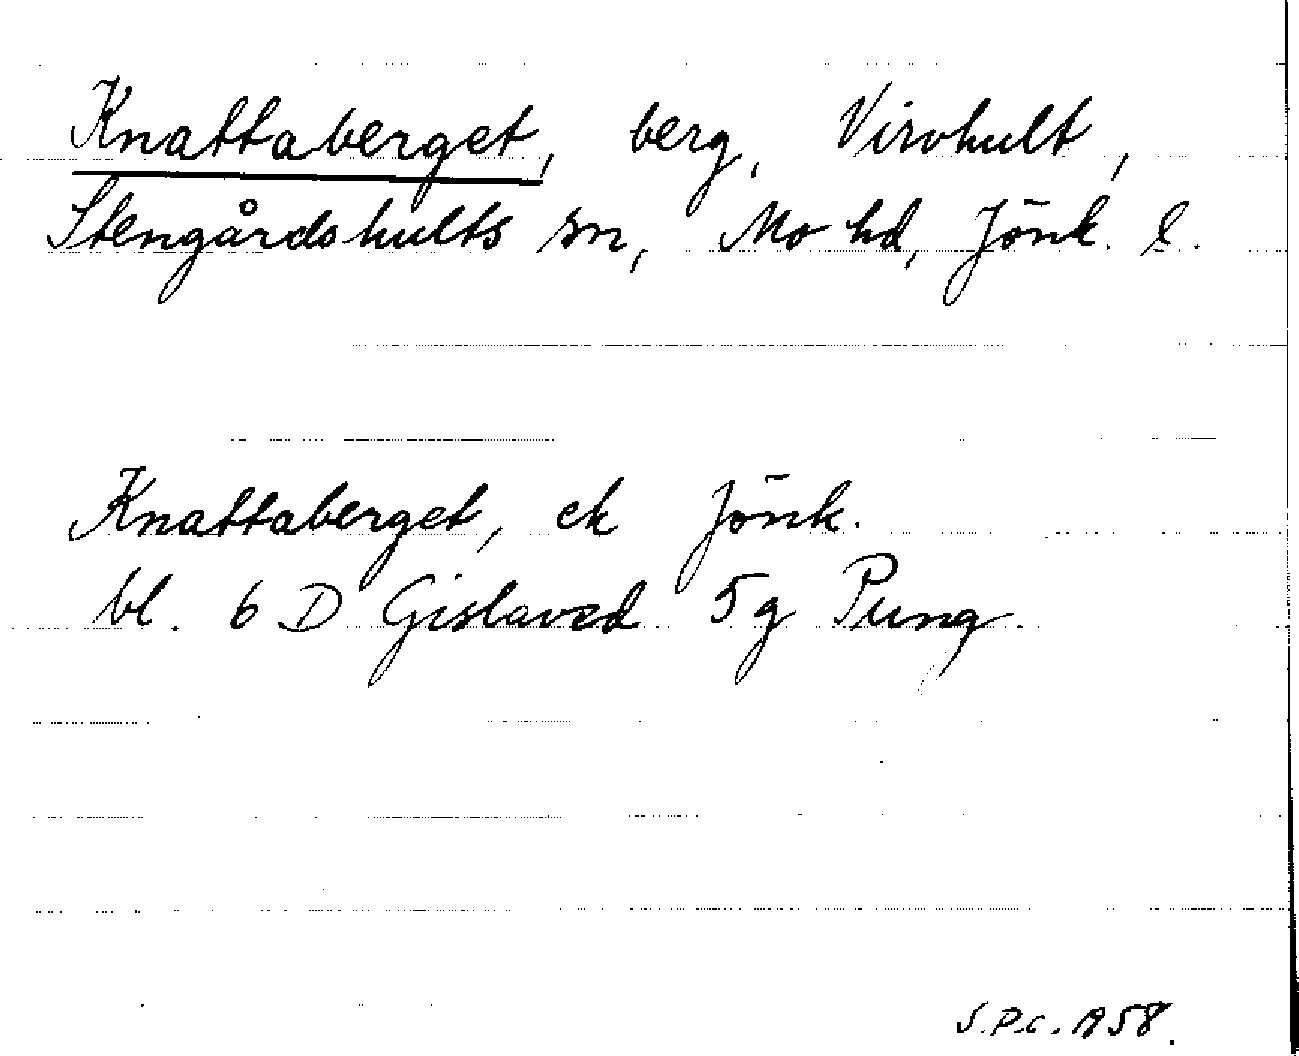 Knattaberget, berg, Virvhult,
Stengårdshults sn, Mo hd, Jönk. l.
Knattaberget, ek Jönk.
bl. 6 D Gislaved 5g Pung.
S.P.C. 1958.